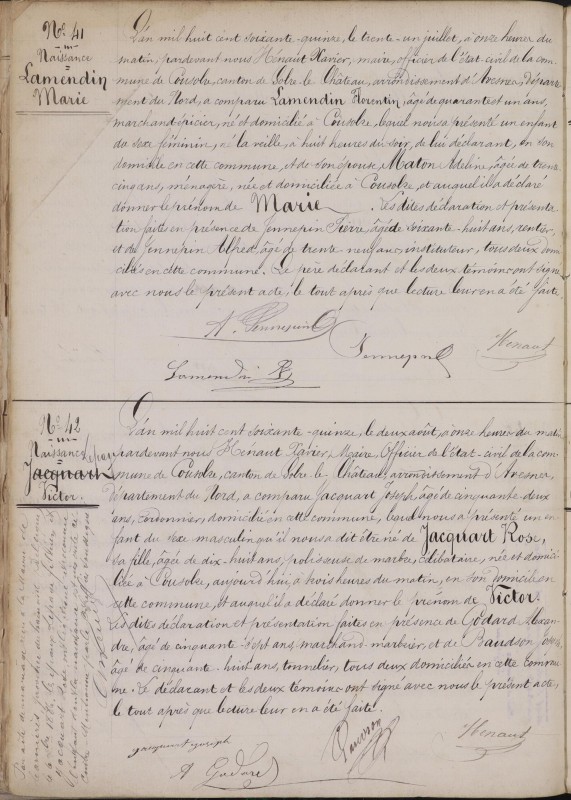 N° 41
Naissance
Lamendin
Marie
L'an mil huit cent soixante-quinze, le trente-un juillet, à onze heures du
matin, pardevant nous Hénaut Xavier, maire, officier de l'état-civil de la com-
mune de Cousolre, canton de Solre-le-Château, arrondissement d'Avesnes, départe-
ment du Nord, a comparu Lamendin Florentin, âgé de quarante et un ans,
marchand épicier, né et domicilié à Cousolre, lequel nous a présenté un enfant
du sexe féminin, né la veille, à huit heures du soir, de lui déclarant, en son
domicile en cette commune, et de son épouse Maton Adeline, âgée de trente
cinq ans, ménagère, née et domiciliée à Cousolre, et auquel il a déclaré
donner le prénom de Marie. Les dites déclaration et présenta-
tion faites en présence de Jennepin Pierre, âgé de soixante-huit ans, rentier,
et de Jennepin Alfred, âgé de trente-neuf ans, instituteur, tous deux domi-
ciliés en cette commune. Le père déclarant et les deux témoins ont signé
avec nous le présent acte, le tout après que lecture leur en a été faite.
A. Jennepin
Jennepin
Hénaut
Lamendin
N° 42
Naissance
Jacquart
Victor.
L'an mil huit cent soixante-quinze, le deux août, à onze heures du matin
pardevant nous Hénaut Xavier, Maire, Officier de l'état-civil de la com-
mune de Cousolre, canton de Solre-le-Château, arrondissement d'Avesnes,
département du Nord, a comparu Jacquart Joseph, âgé de cinquante-deux
ans, cordonnier, domicilié en cette commune, lequel nous a présenté un en-
fant du sexe masculin qu'il nous a dit être né de Jacquart Rose,
sa fille, âgée de dix-huit ans, polisseuse de marbre, célibataire, née et domici-
liée à Cousolre, aujourd'hui, à trois heures du matin, en son domicile en
cette commune, et auquel il a déclaré donner le prénom de Victor.
Les dites déclaration et présentation faites en présence de Godard Alexan-
dre, âgé de cinquante-sept ans, marchand-marbrier, et de Baudson Joseph,
âgé de cinquante-huit ans, tonnelier, tous deux domiciliés en cette commu-
me. Le déclarant et les deux témoins ont signé avec nous le présent acte,
le tout après que lecture leur en a été faite.
jacquart joseph
Baudson
Hénaut
A Godard